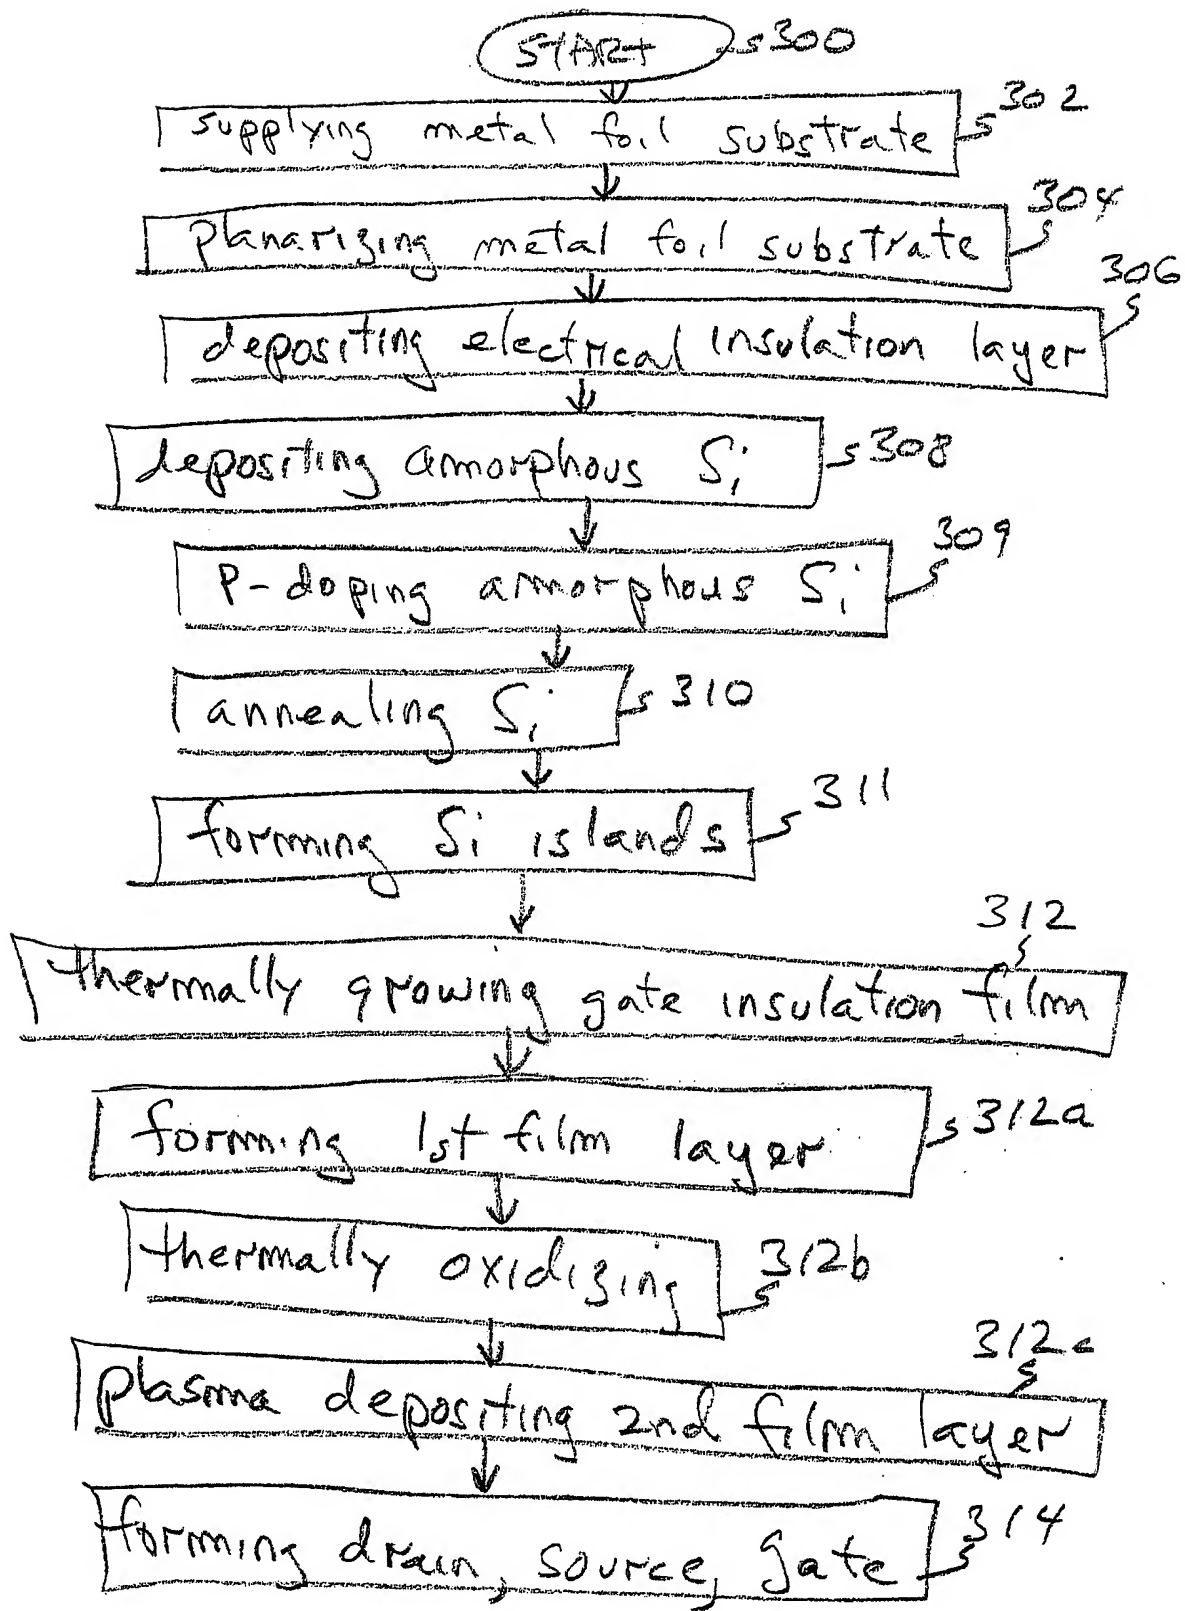 START 300
302
supplying metal foil substrate
304
planarizing metal foil substrate
306
depositing electrical insulation layer
depositing amorphous Si 308
309
P-doping amorphous Si
annealing Si 310
311
forming Si islands
312
thermally growing gate insulation film
forming 1st film layer 312a
thermally oxidizing 312b
312c
plasma depositing 2nd film layer
forming drain, source, gate 314